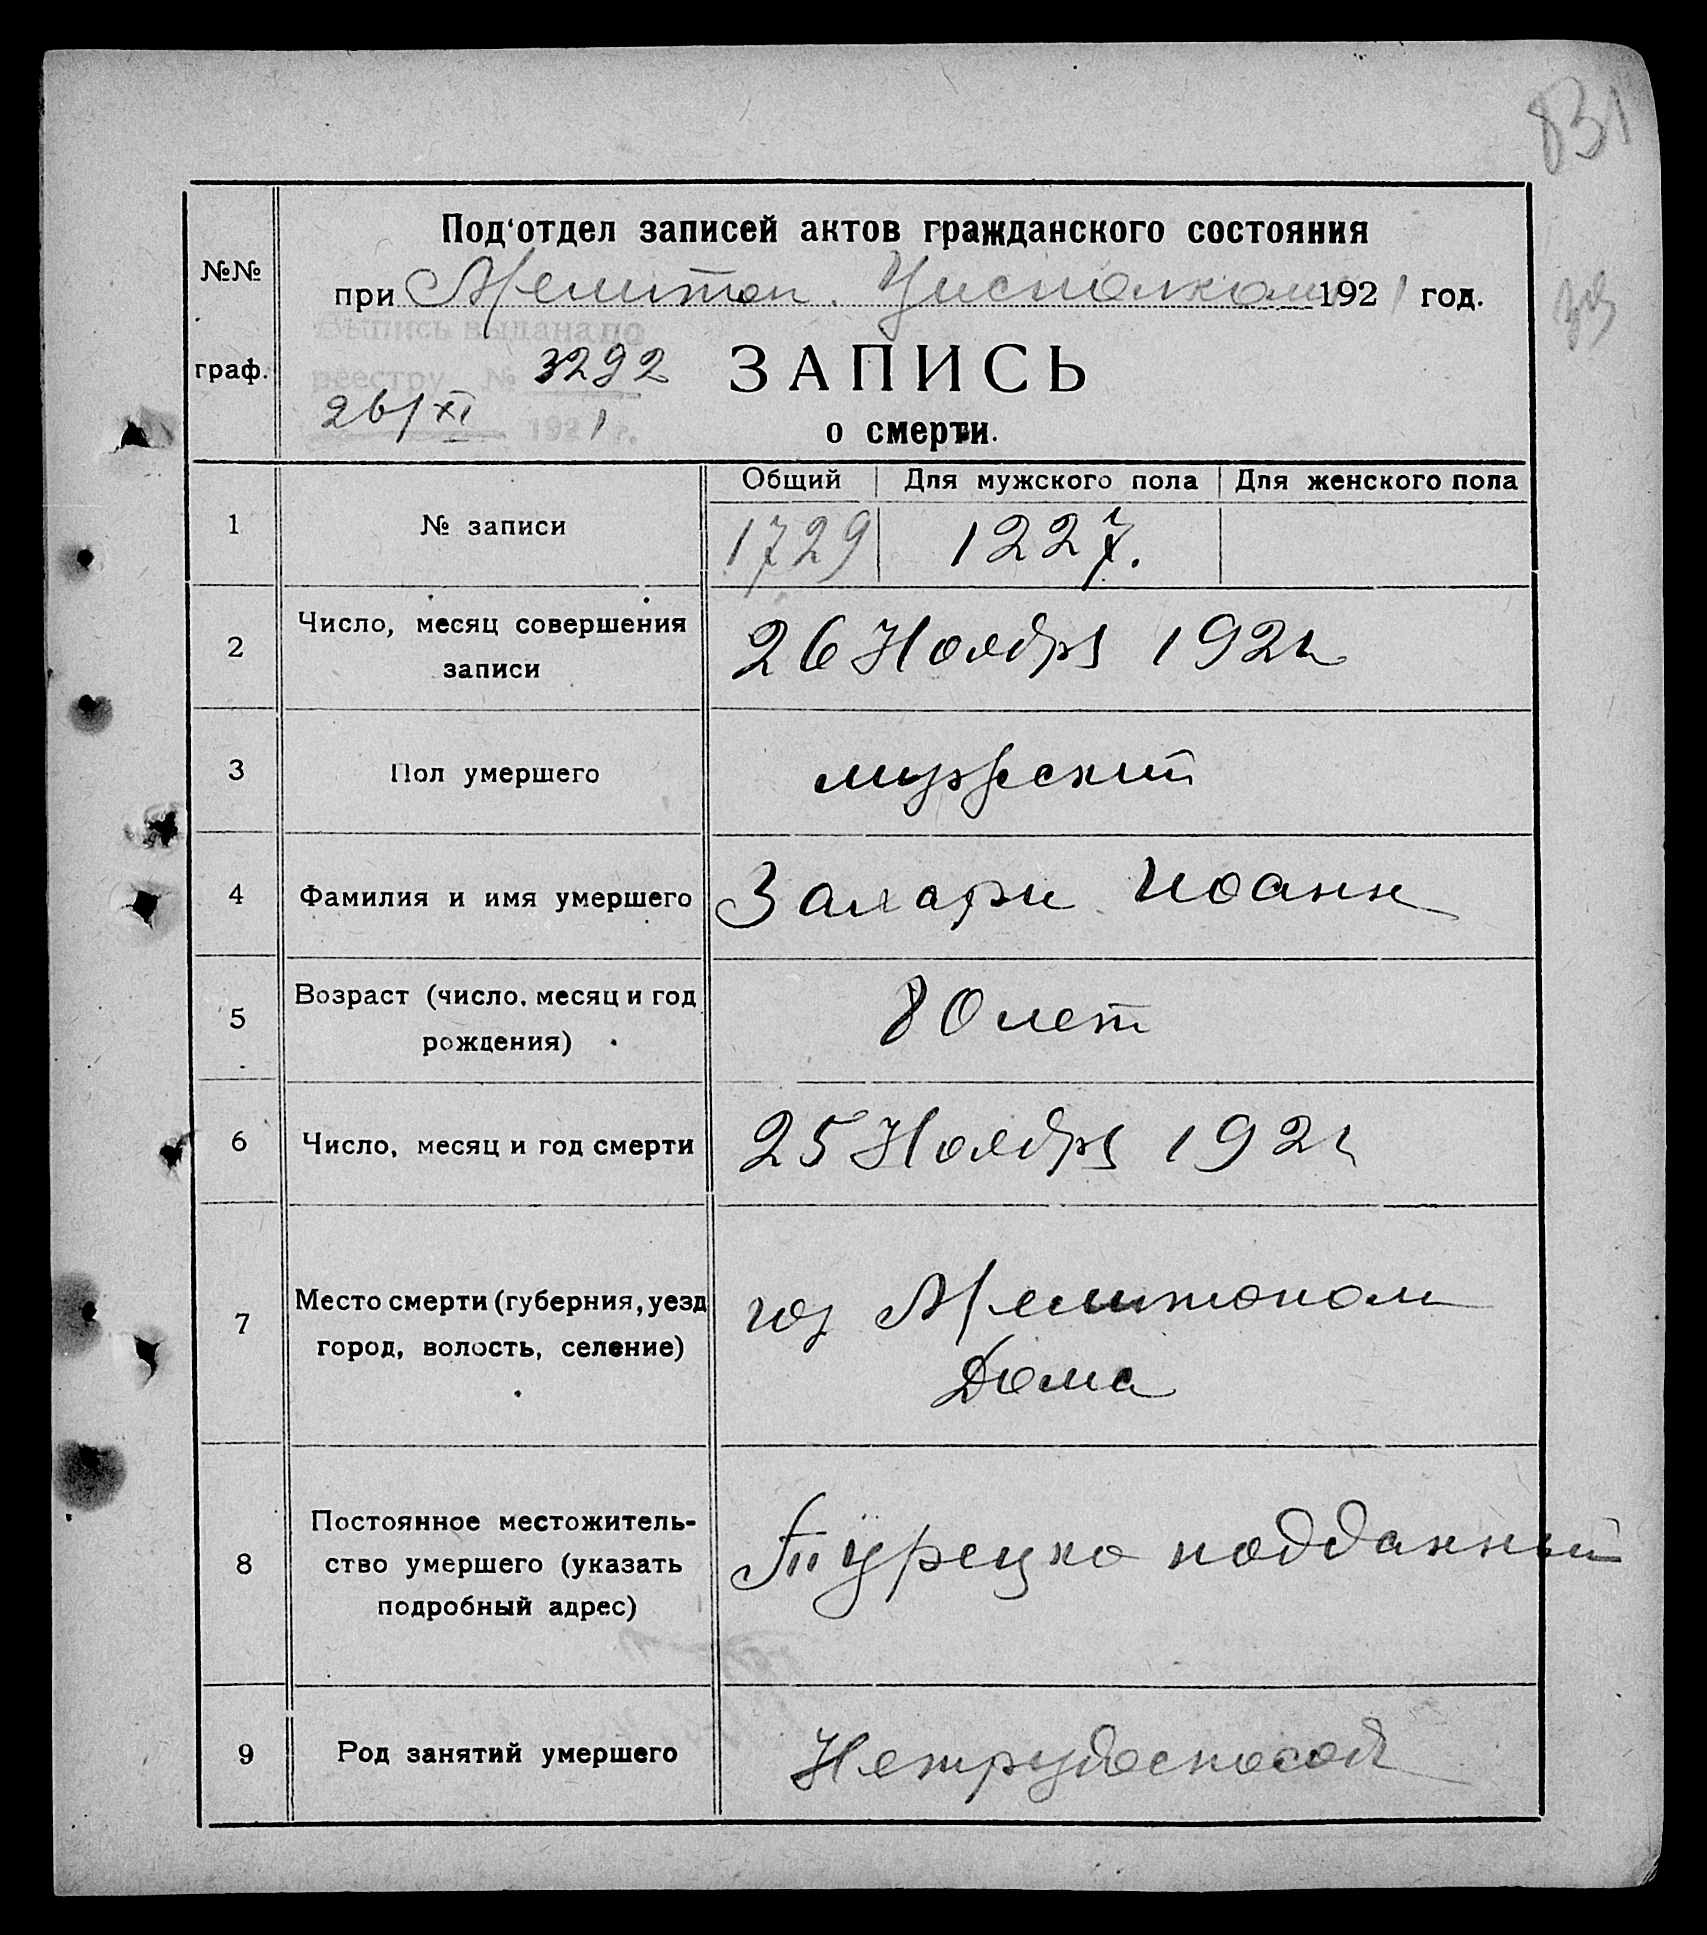 831
Под'отдел записей актов гражданского состояния
№№
при Мелитоп. Уисполкоме 1921 год.
Выпись выдана по
граф. реестру № 3292 ЗАПИСЬ
26/XI 1921 г. о смерти.
Общий Для мужского пола Для женского пола
1 № записи 1729 1227.
2 Число, месяц совершения записи 26 Ноября 1921
3 Пол умершего мужский
4 Фамилия и имя умершего Залари Иоанн
5 Возраст (число, месяц и год рождения) 80 лет
6 Число, месяц и год смерти 25 Ноября 1921
7 Место смерти (губерния, уезд
город, волость, селение) гор Мелитополь
Дома
8 Постоянное местожитель-
ство умершего (указать
подробный адрес) Турецко подданный
9 Род занятий умершего Нетрудоспособ